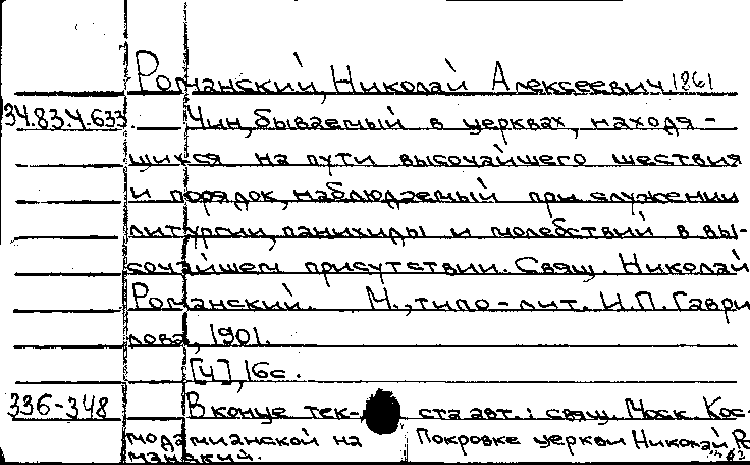 Романский, Николай Алексеевич. 1861
34.83.4.633 Чин, бываемый в церквах, находя-
щихся на пути высочайшего шествия
и порядок, наблюдаемый при служении
литургии, панихиды и молебствий в вы-
сочайшем присутствии. Свящ. Николай
Романский. М., типо-лит. И.П. Гаври
лова, 1901.
[4], 16с.
336-348 В конце тек- ста авт.: свящ. Моск. Кос-
модамианской на Покровке церкви Николай Ро
манский.